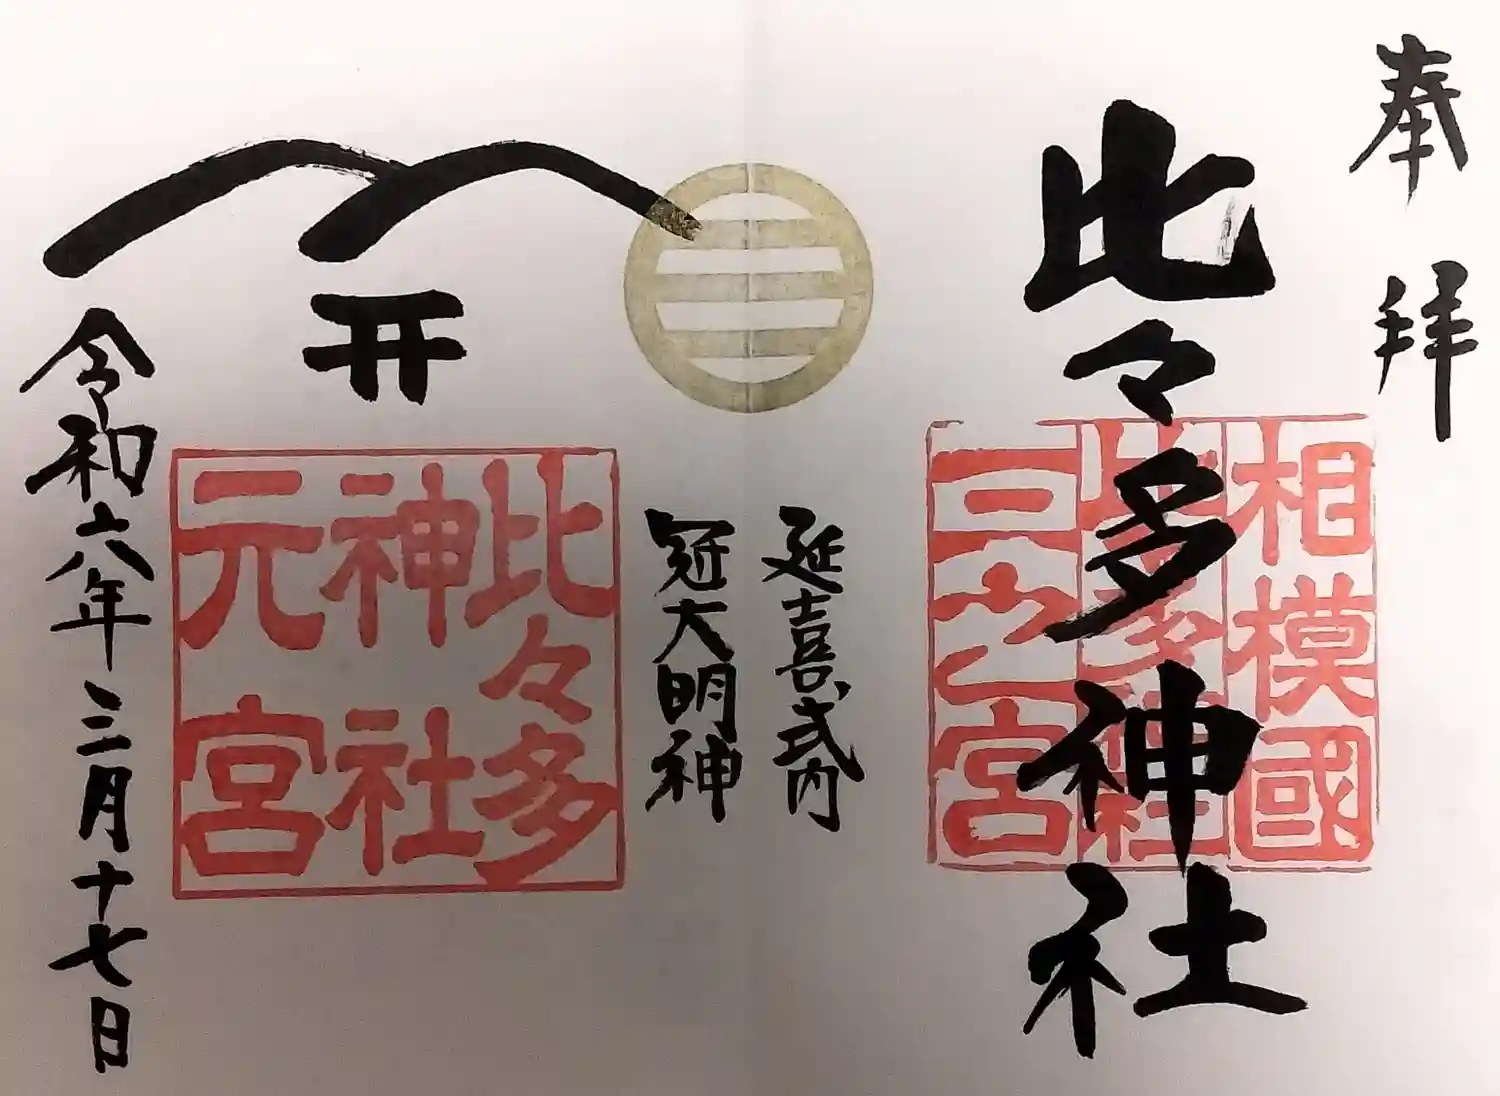 奉拝
比々多神社
相模國
三之宮
延喜式内
冠大明神
比々多
神社
元宮
令和六年三月十七日